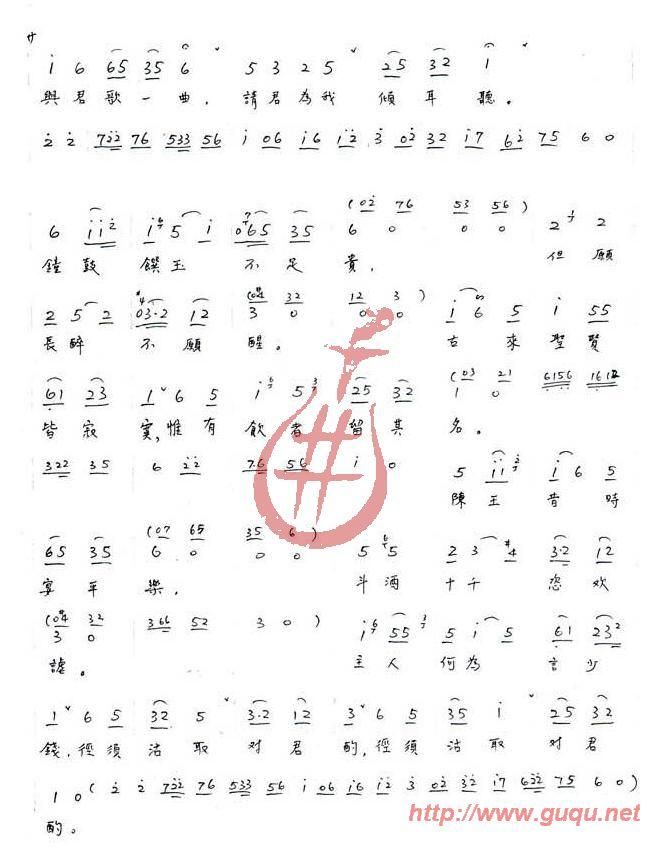 サ
i 6 65 35 6 ˇ 5 3 2 5 ˇ 25 32 i ˇ
與君歌一曲，請君為我傾耳聽。
2 2 722 76 533 56 i 06 i6 i2 3 02 32 i7 62 75 6 0
(02 76 53 56)
6 ii2 i5 i 065 35 6 0 0 0 2 2
鐘鼓饌玉不足貴，但願
(04 32 12 3)
2 5 2 03·2 12 3 0 0 0 i 6 5 i 55
長醉不願醒。古來聖賢
(03 21 6156 1612
61 23 1 ˇ 6 5 i 5 25 32 1 0
皆寂寞，惟有飲者留其名。
322 35 6 22 76 56 i 0 5 ii i 6 5
陳王昔時
(07 65 35 6)
65 35 6 0 0 0 5 5 2 3 #4 3·2 12
宴平樂，斗酒十千恣歡
(04 32
3 0 366 52 3 0 ) i 55 5 i 5 61 232
謔。主人何為言少
1 ˇ 6 5 32 5 ˇ 3·2 12 3 ˇ 6 5 35 i ˇ 25 32
錢，徑須沽取对君酌，徑須沽取对君
1 0 ( 2 2 722 76 533 56 i 06 i6 i2 3 02 32 i7 622 75 6 0 )
酌。
http://www.guqu.net